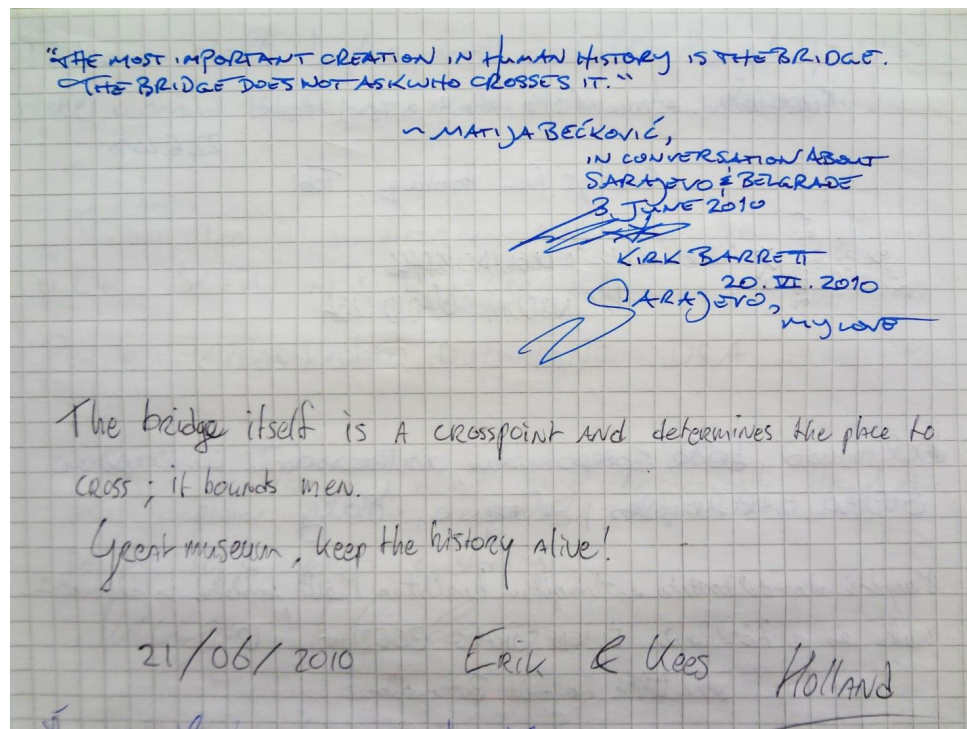 "THE MOST IMPORTANT CREATION IN HUMAN HISTORY IS THE BRIDGE.
THE BRIDGE DOES NOT ASK WHO CROSSES IT."
~ MATIJA BEĆKOVIĆ,
IN CONVERSATION ABOUT
SARAJEVO & BELGRADE
3. JUNE 2010
KIRK BARRETT
20. VI. 2010
SARAJEVO,
MY LOVE
The bridge itself is A crosspoint AND determines the place to
cross ; it bounds men.
Great museum, keep the history Alive!
21/06/2010 Erik & Kees Holland